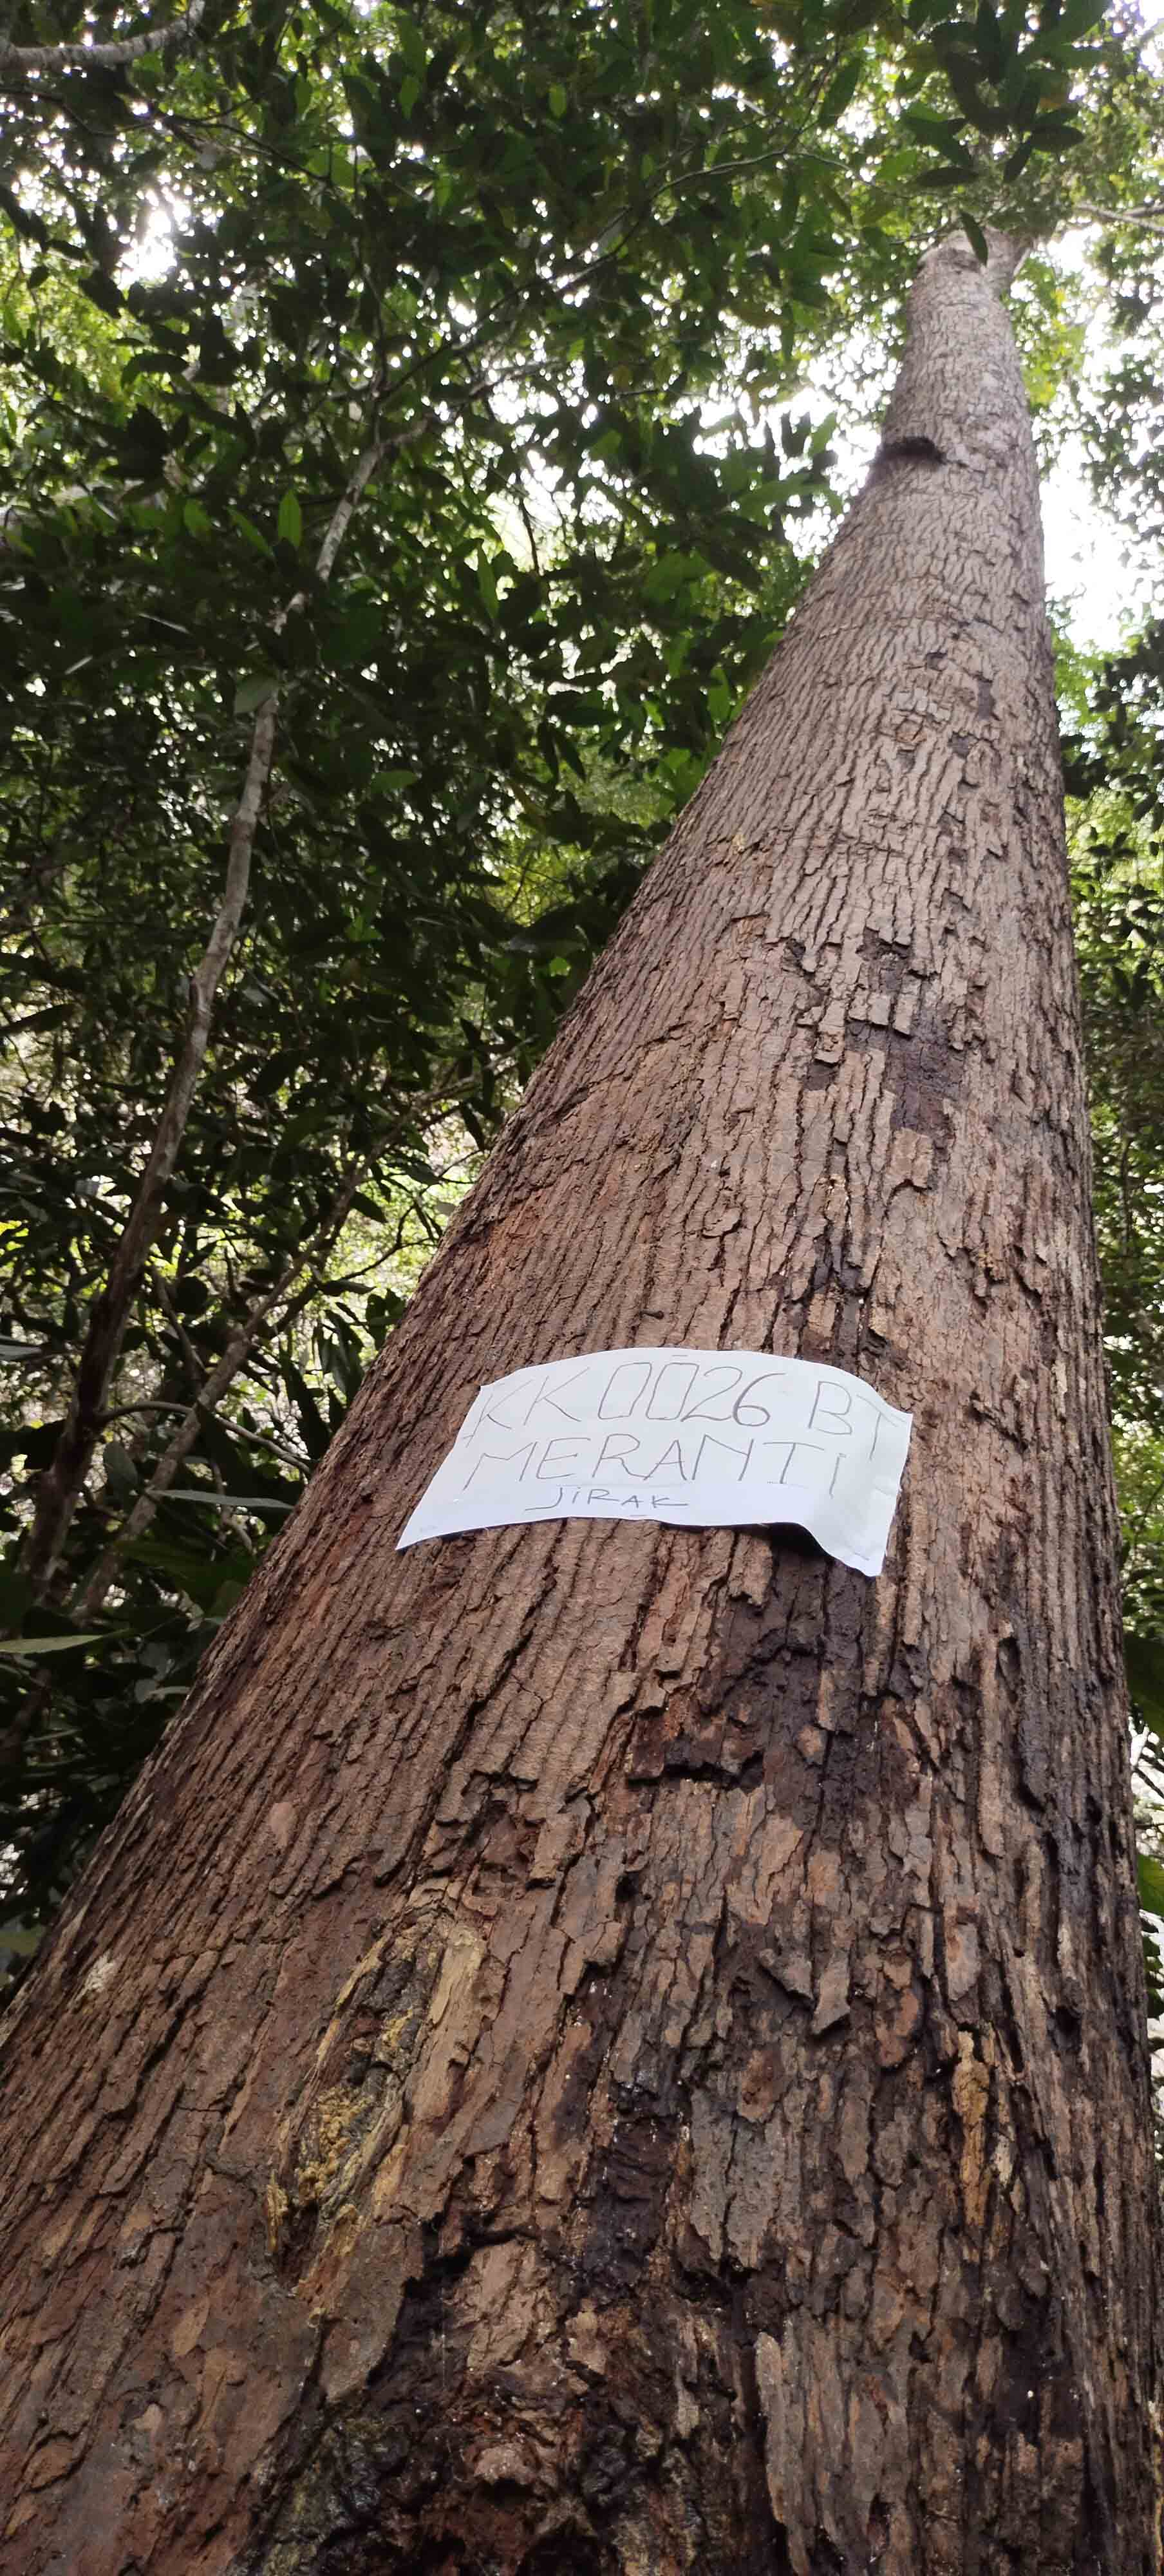 KK0026 BT
MERANTI
JiRAK